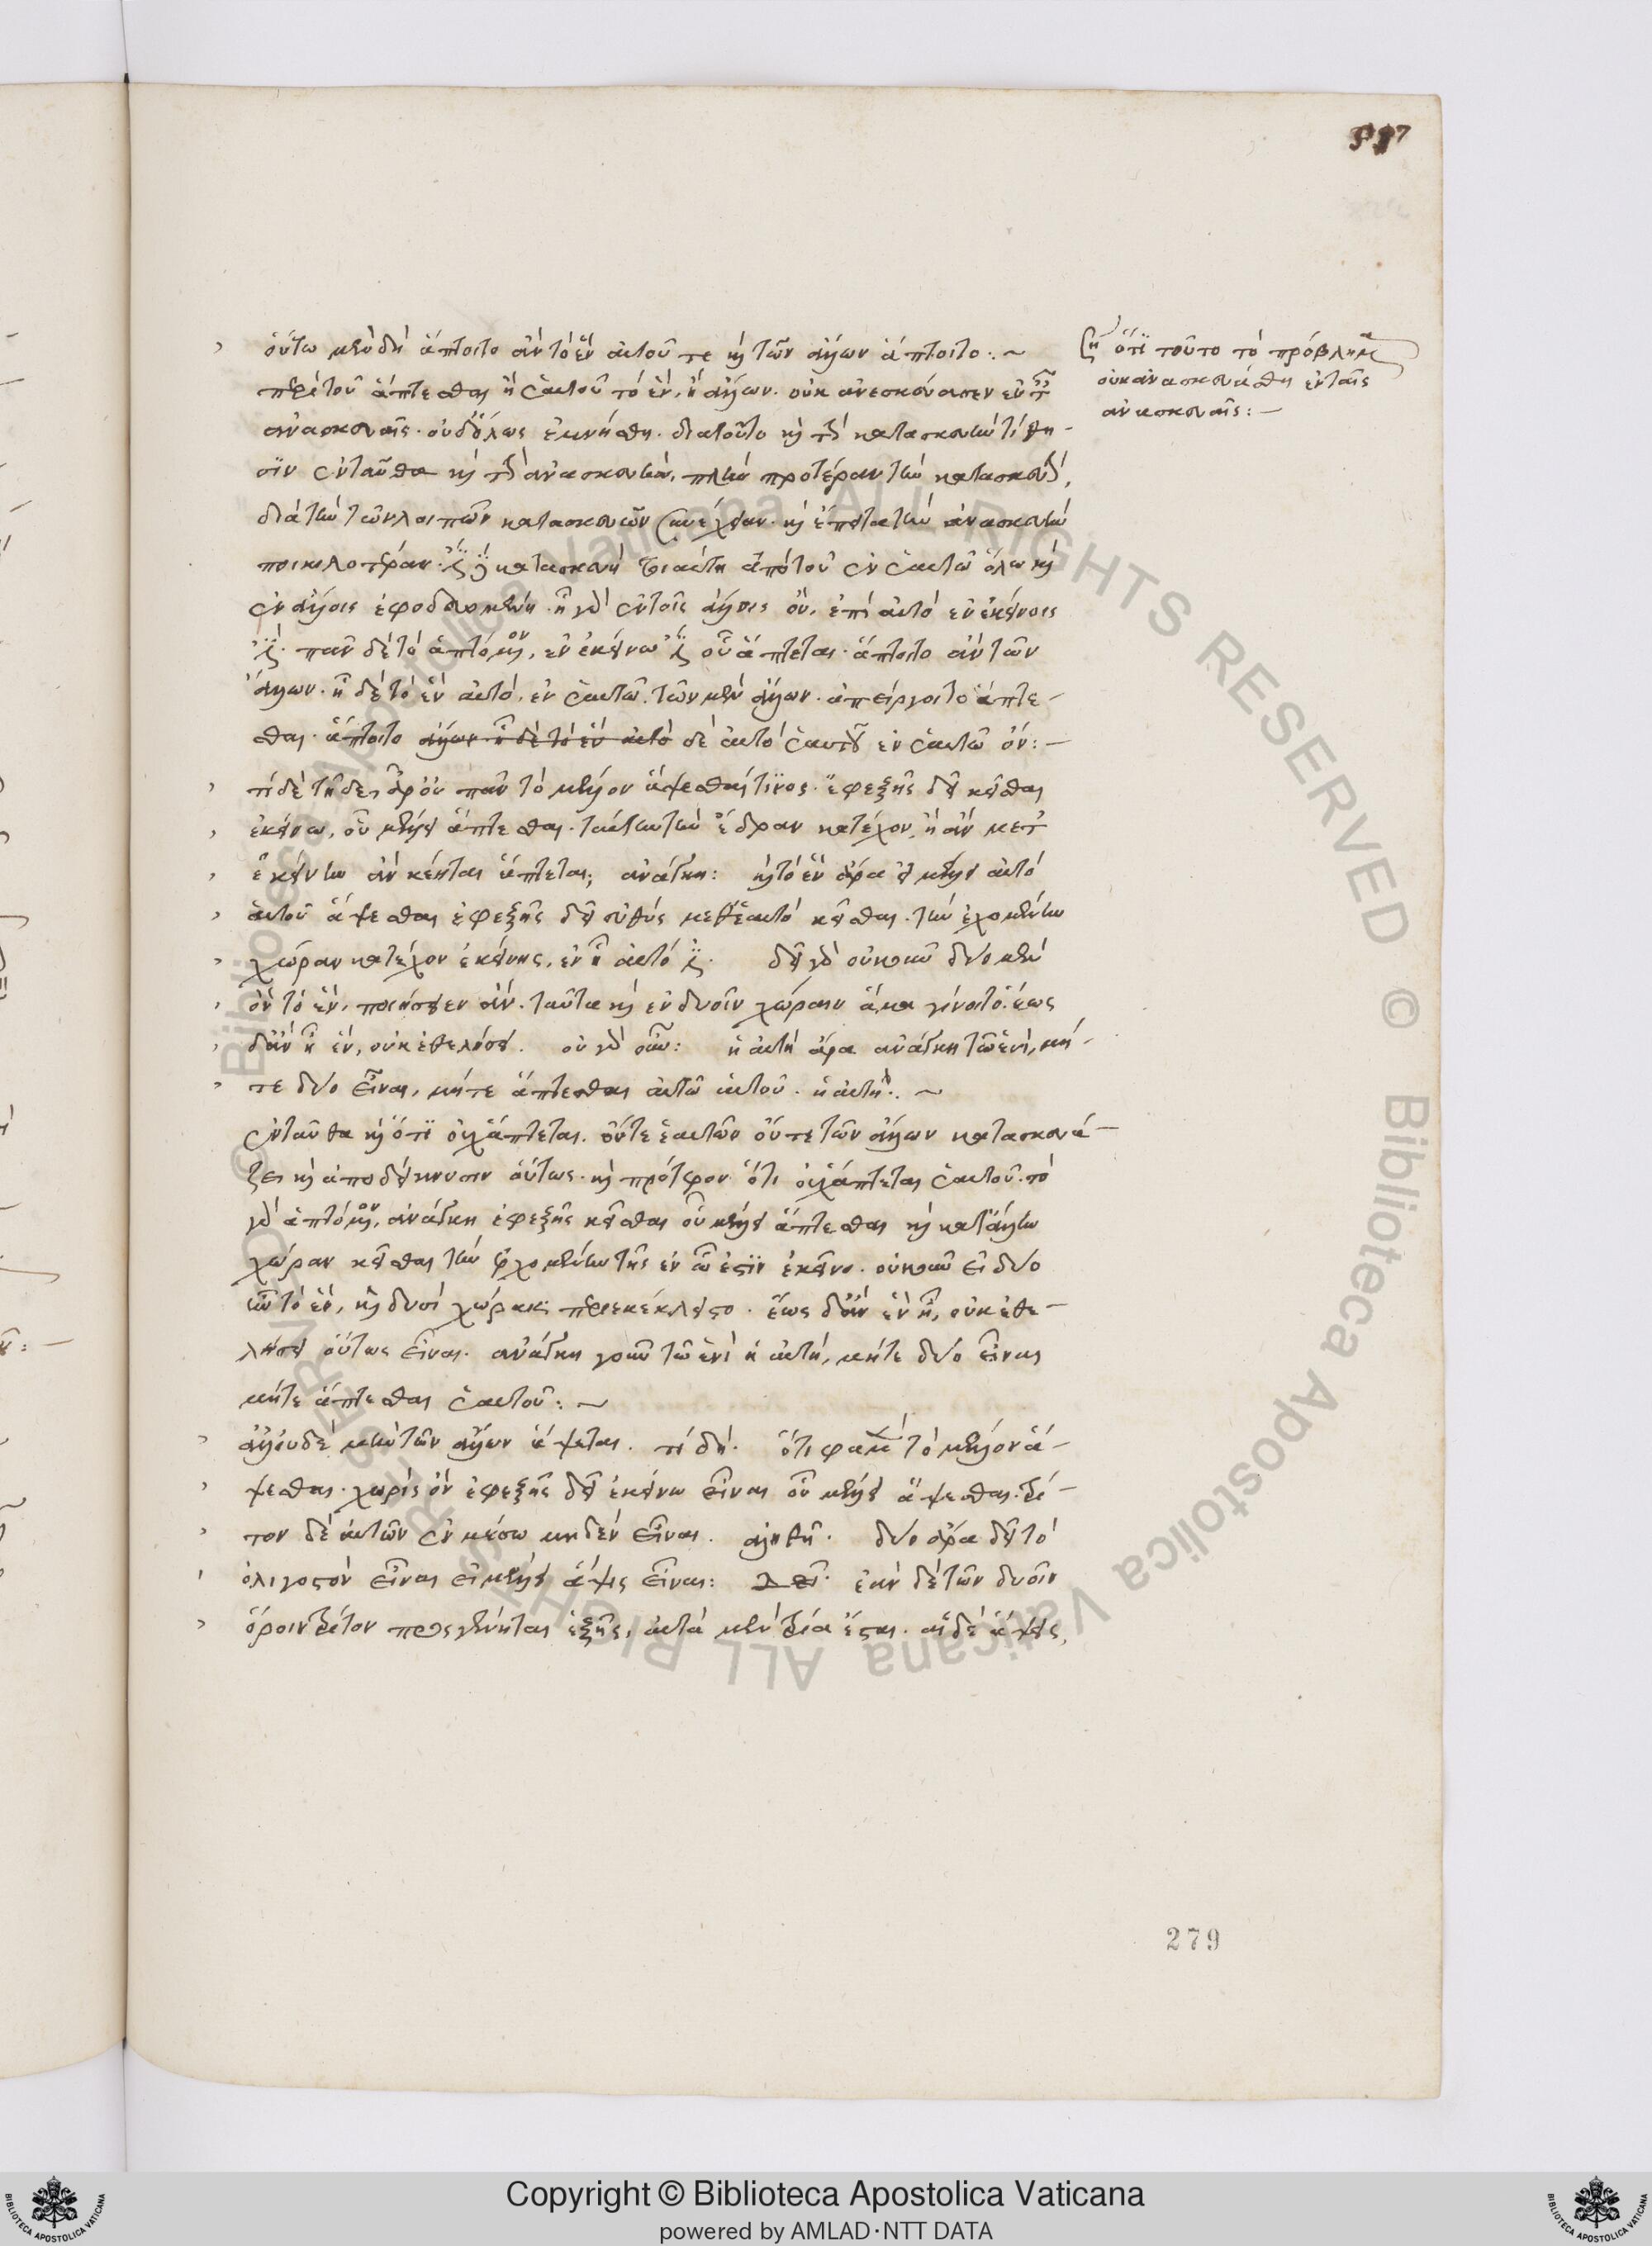 997
οὕτω μὲν δὴ ἅπτοιτο ἂν τὸ ἓν αὑτοῦ τε καὶ τῶν ἄλλων ἅπτοιτο:~
περὶ τοῦ ἅπτεσθαι ἢ ἑαυτοῦ τὸ ἕν, ἢ ἄλλων. οὐκ ἀνεσκεύασεν ἐν τ
ἀνασκευαῖς. οὐδ' ὅλως ἐμνήσθη. διὰ τοῦτο καὶ τὴν κατασκευὴν τίθη-
σιν ἐνταῦθα καὶ τὴν ἀνασκευήν. πλὴν προτέραν τὴν κατασκευὴν,
διὰ τὴν τῶν λοιπῶν κατασκευῶν συνέχειαν. καὶ ἔπειτα τὴν ἀνασκευὴν
ποικιλοτέραν. ἔστι δὲ κατασκευὴ τοιαύτη ἀπὸ τοῦ ἐν ἑαυτῷ ὅλῳ καὶ
ἐν ἄλλοις ἐφοδευομένη. ᾗ γὰρ ἐν τοῖς ἄλλοις ὂν, ἐπεὶ αὐτὸ ἐν ἐκείνοις
ἐστί. πᾶν δὲ τὸ ἁπτόμενον, ἐν ἐκείνω ἐστὶ οὗ ἅπτεται. ἅπτοιτο ἂν τῶν
ἄλλων. ᾗ δὲ τὸ ἓν αὐτὸ, ἐν ἑαυτῷ. τῶν μὲν ἄλλων. ἀπείργοιτο ἅπτε-
σθαι. ἅπτοιτο ἄλλων. ᾗ δὲ τὸ ἓν αὐτὸ δὲ αὐτὸ ἑαυτοῦ ἐν ἑαυτῷ ὄν:-
τί δὲ τῇδε; ἆρ' οὐ πᾶν τὸ μέλλον ἅψεσθαί τινος. ἐφεξῆς δεῖ κεῖσθαι
ἐκείνω, οὗ μέλλει ἅπτεσθαι. ταύτην τὴν ἕδραν κατέχον, ἣ ἂν μετ
ἐκείνην ἂν κέηται ἅπτεται; ἀνάγκη: καὶ τὸ ἓν ἄρα εἰ μέλλει αὐτὸ
αὑτοῦ ἅψεσθαι ἐφεξῆς δεῖ εὐθὺς μεθ' ἑαυτὸ κεῖσθαι. τὴν ἐχομένην
χώραν κατέχον ἐκείνης, ἐν ᾗ αὐτό ἐστι. δεῖ γὰρ οὐκοῦν δύο μὲν
ὂν τὸ ἓν, ποιήσειεν ἂν. ταῦτα καὶ ἐν δυοῖν χώραιν ἅμα γένοιτο. ἕως
δ' ἂν ᾖ ἓν, οὐκ ἐθελήσει. οὐ γὰρ οὖν: ἡ αὐτὴ ἄρα ἀνάγκη τῷ ἑνὶ, μή-
τε δύο εἶναι, μήτε ἅπτεσθαι αὐτῶ αὑτοῦ. ἡ αὐτή:~
ἐνταῦθα καὶ ὅτι οὐχ ἅπτεται. οὔτε ἑαυτῶν οὔτε τῶν ἄλλων κατασκευά-
ζει καὶ ἀποδείκνυσιν οὕτως. καὶ πρότερον ὅτι οὐχ ἅπτεται ἑαυτοῦ. τὸ
γὰρ ἁπτόμενον, ἀνάγκη ἐφεξῆς κεῖσθαι οὗ μέλλει ἅπτεσθαι καὶ κατ' ἄλλην
χώραν κεῖσθαι τὴν ἐχομένην τῆς ἐν ᾧ ἐστὶν ἐκεῖνο. οὐκοῦν εἰ δύο
ὂν τὸ ἓν, καὶ δυσὶ χώραις περιεκέκλειστο. ἕως δ' ἂν ἓν ᾖ, οὐκ ἐθε-
λήσει οὕτως εἶναι. ἀνάγκη γοῦν τῷ ἑνὶ ἡ αὐτὴ, μήτε δύο εἶναι
μήτε ἅπτεσθαι ἑαυτοῦ:~
ἀλλ' οὐδὲ μὴν τῶν ἄλλων ἅψεται. τί δή. ὅτι φαμὲν τὸ μέλλον ἅ-
ψεσθαι. χωρὶς ὂν ἐφεξῆς δεῖ ἐκείνω εἶναι οὗ μέλλει ἅψεσθαι. τρί-
τον δὲ αὐτῶν ἐν μέσω μηδὲν εἶναι. ἀληθῆ. δύο ἄρα δεῖ τὸ
ὀλιγοστὸν εἶναι εἰ μέλλει ἅψις εἶναι: δεῖ. ἐὰν δὲ τῶν δυοῖν
ὅροιν τρίτον προσγένηται ἑξῆς, αὐτὰ μὲν τρία ἔσται. αἱ δὲ ἅψεις,
ση ὅτι τοῦτο τὸ πρόβλημα
οὐκ ἀνασκευάσθη ἐν ταῖς
ἀνασκευαῖς:-
279
© Biblioteca Apostolica Vaticana ALL RIGHTS RESERVED
Copyright © Biblioteca Apostolica Vaticana
powered by AMLAD·NTT DATA
BIBLIOTECA APOSTOLICA VATICANA
BIBLIOTECA APOSTOLICA VATICANA